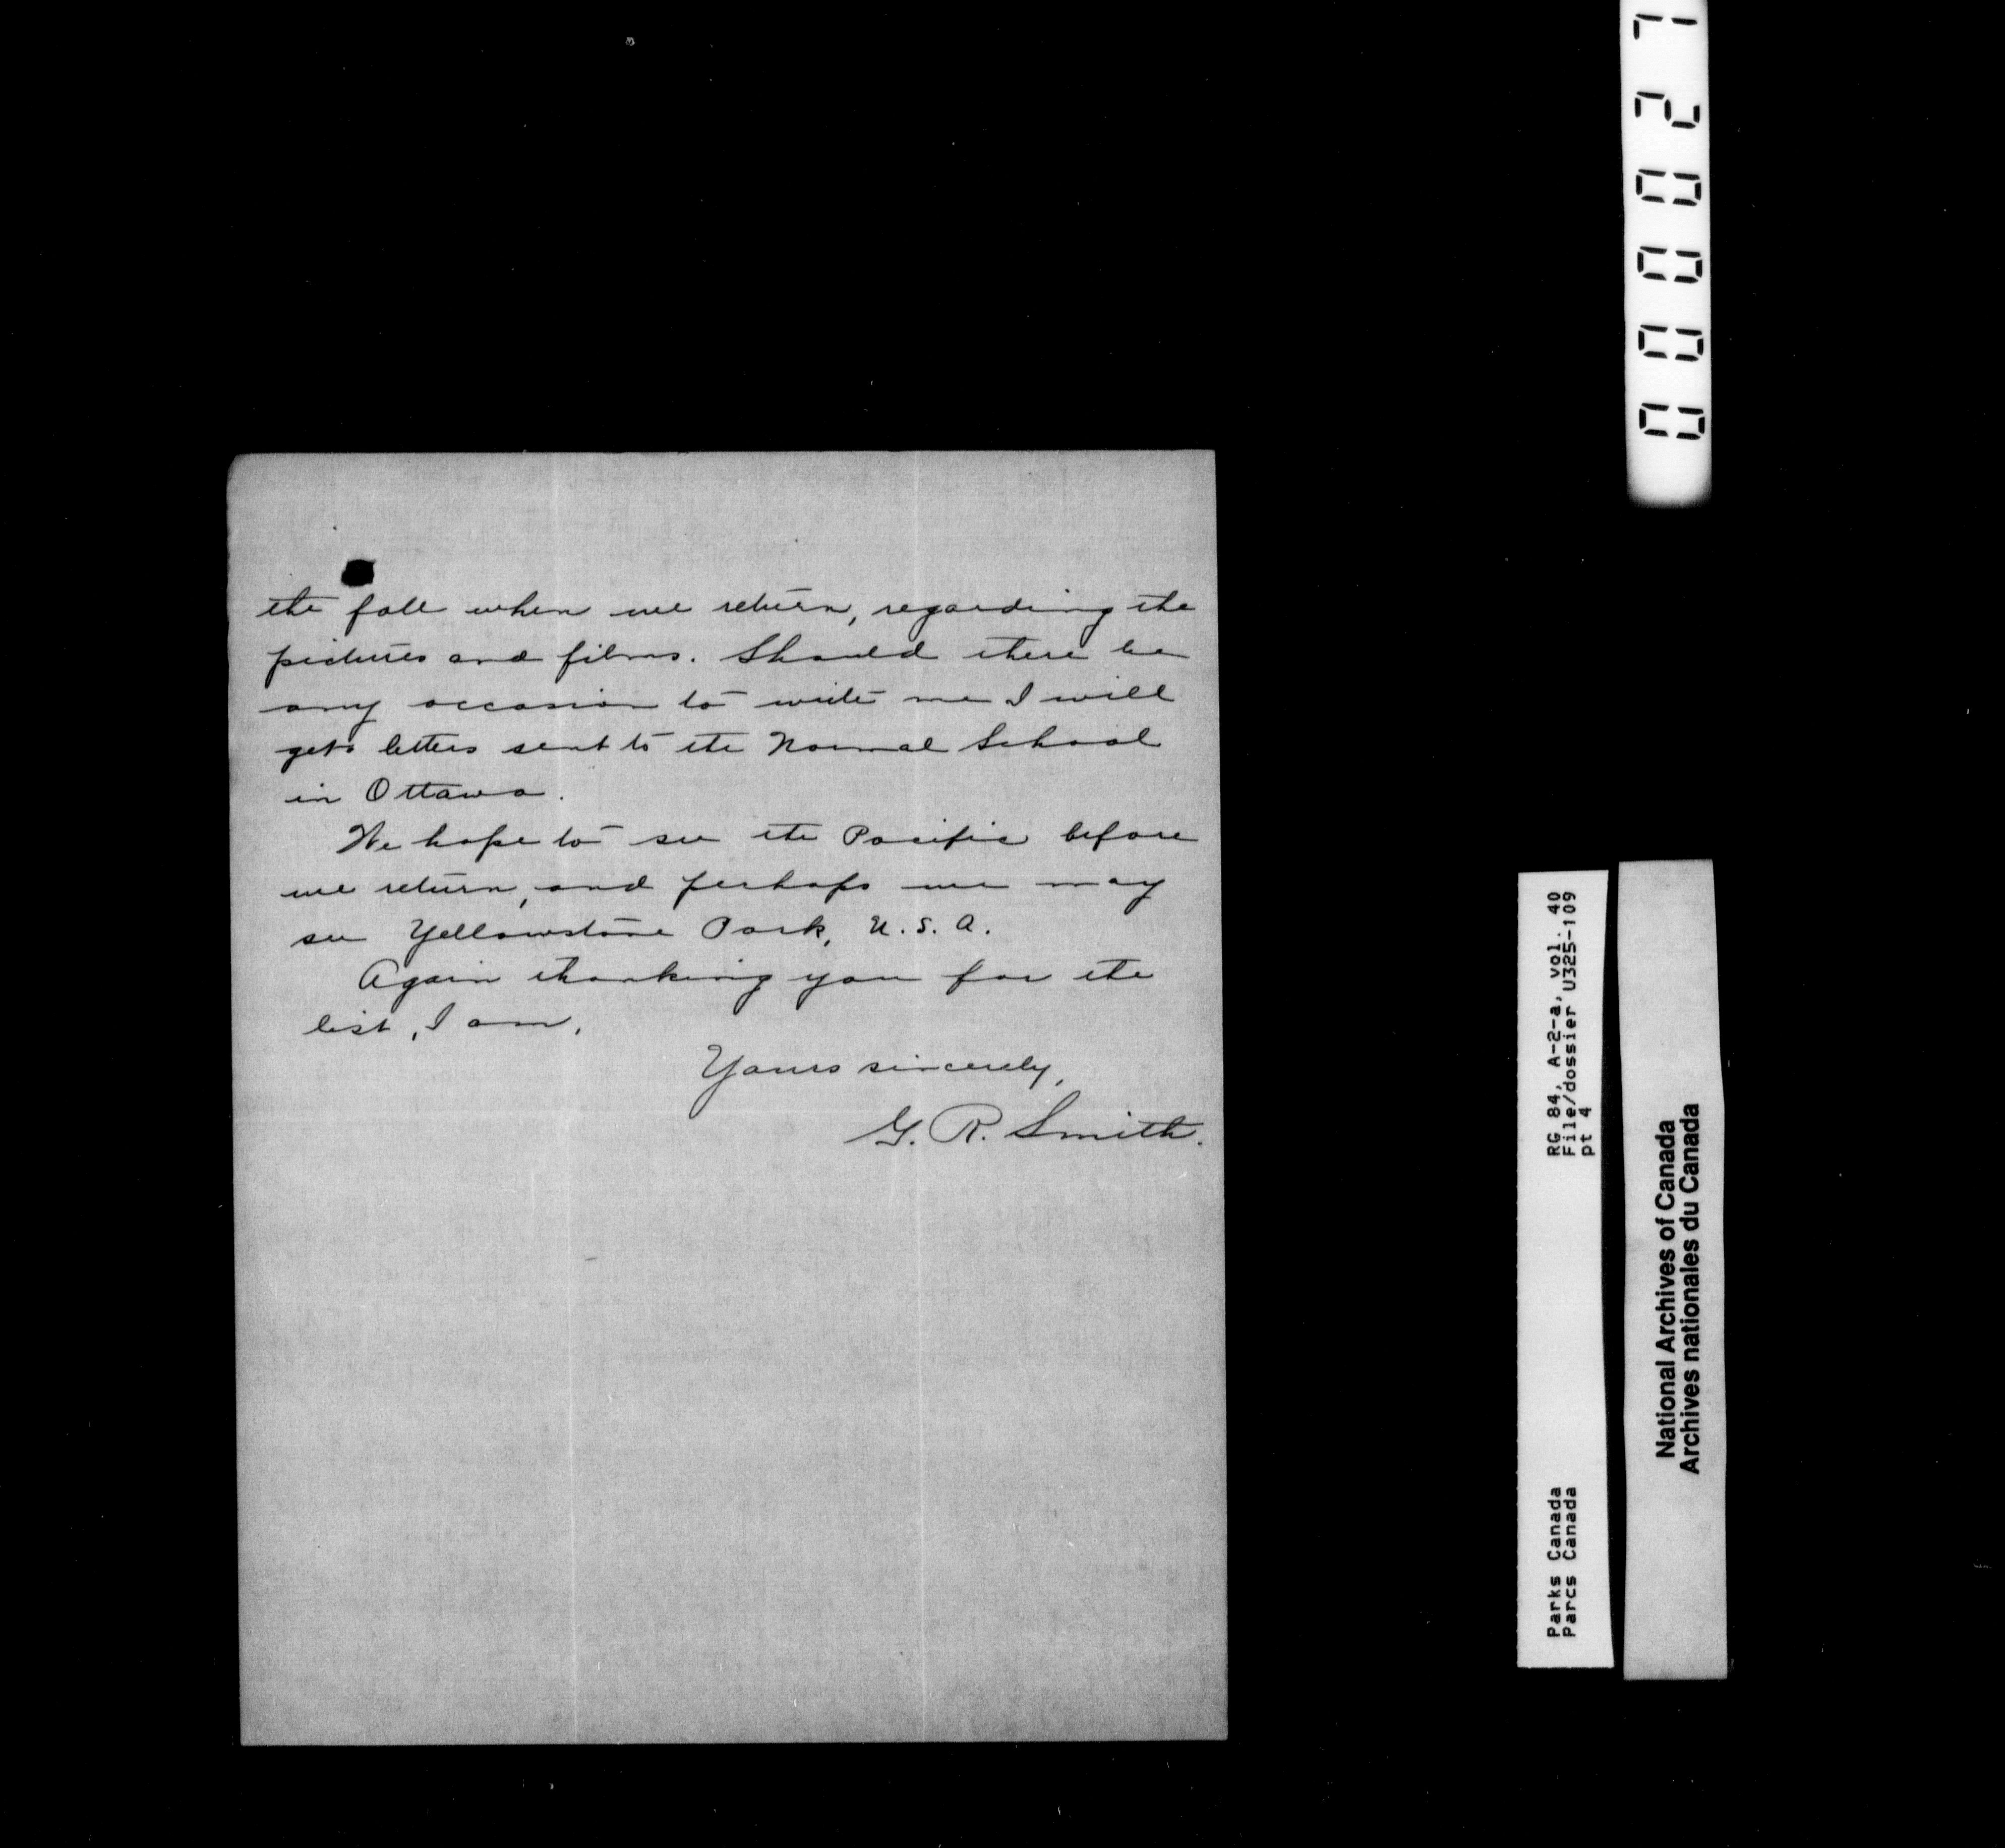 the fall when we return, regarding the
pictures and films. Should there be
any occasion to write me I will
get letters sent to the Normal School
in Ottawa.
We hope to see the Pacific before
we return, and perhaps we may
see Yellowstone Park, U.S.A.
Again thanking you for the
list, I am,
Yours sincerely,
G. R. Smith.
Parks Canada
Parcs Canada
RG 84, A-2-a, vol. 40
File/dossier U325-109
pt 4
National Archives of Canada
Archives nationales du Canada
000027